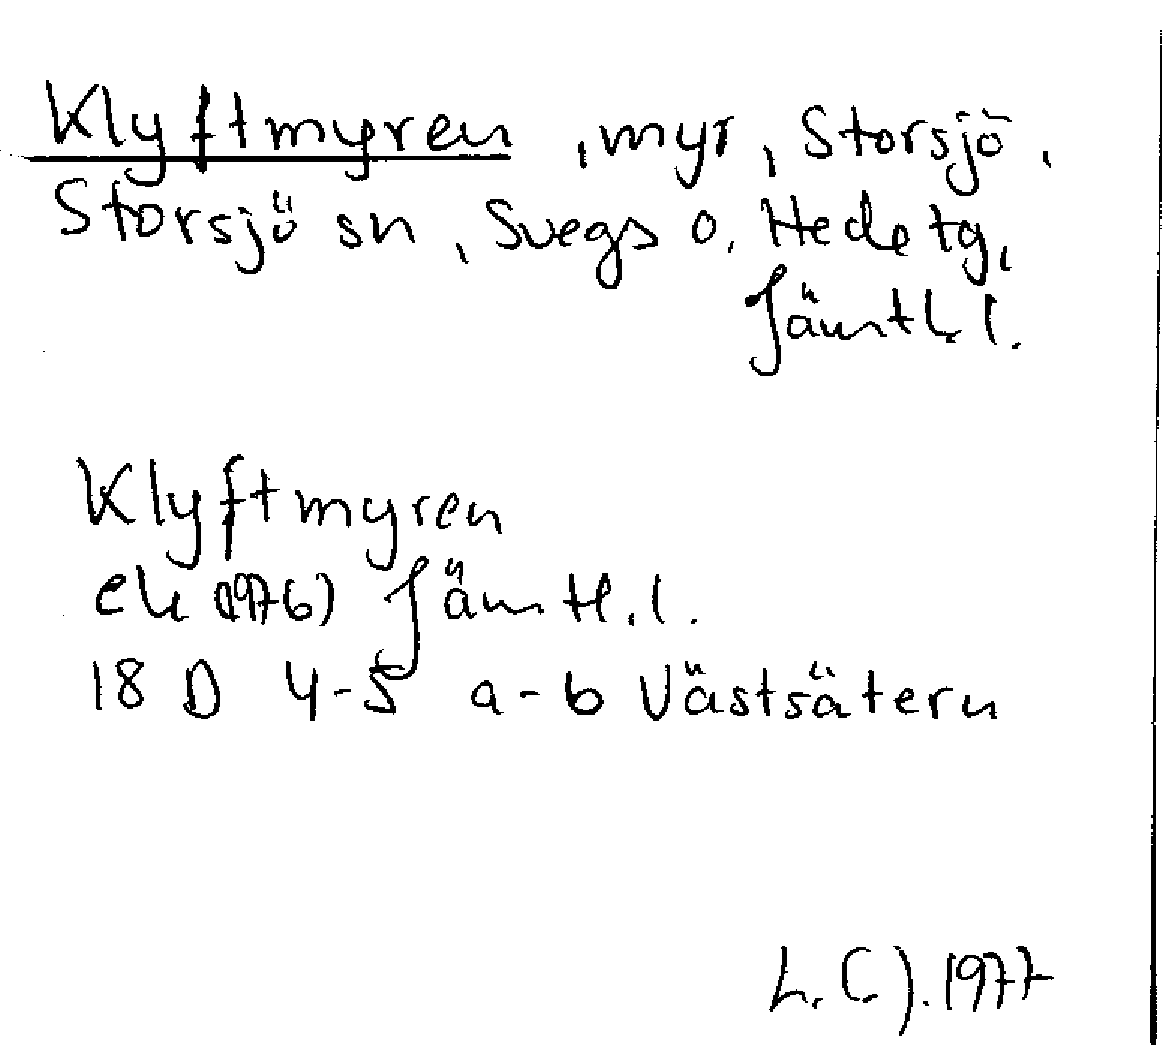 Klyftmyren , myr, Storsjö,
Storsjö sn, Svegs o. Hede tg,
Jämtl. l.
Klyftmyren
ek (1976) Jämtl. l.
18 D 4-5 a-b Västsätern
L. C J. 1977